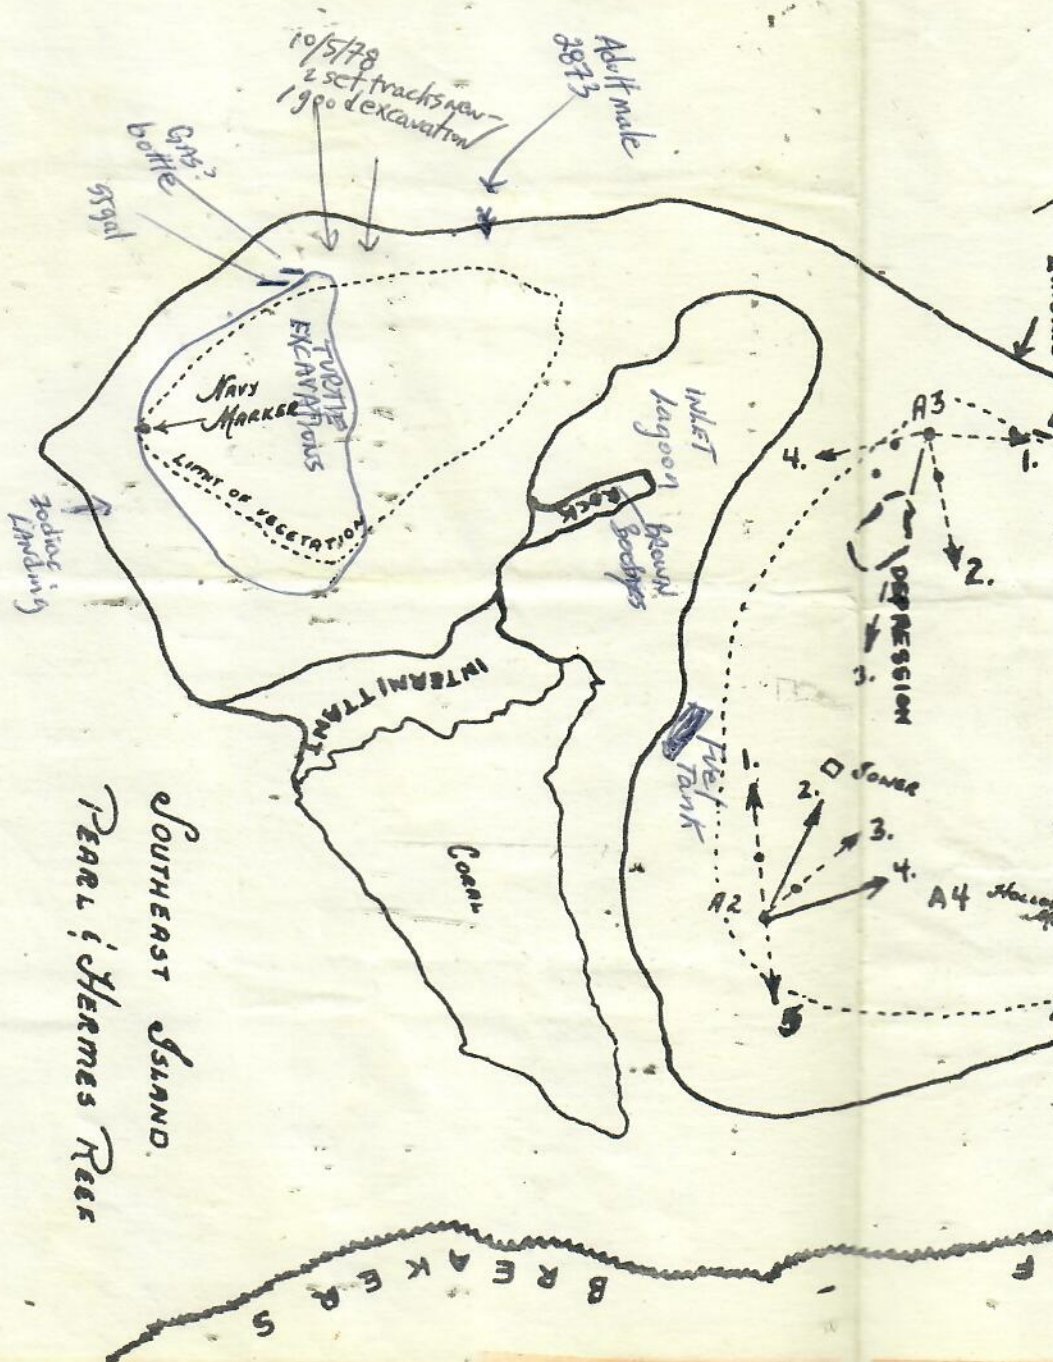 10/5/78
2 set tracks new-
1 good excavation
Adult male
2873
GAS?
bottle
55gal
TURTLE
EXCAVATIONS
NAVY
MARKER
LIMIT OF VEGETATION
Zodiac
LANDING
INLET
Lagoon
ROCK
BROWN
Boobys
A3
1.
4.
2.
3.
DEPRESSION
INTERMITTANT
Fuel
TANK
1.
2.
3.
4.
A2
A4
CORAL
SOUTHEAST ISLAND.
PEARL & HERMES REEF
BREAKERS
F